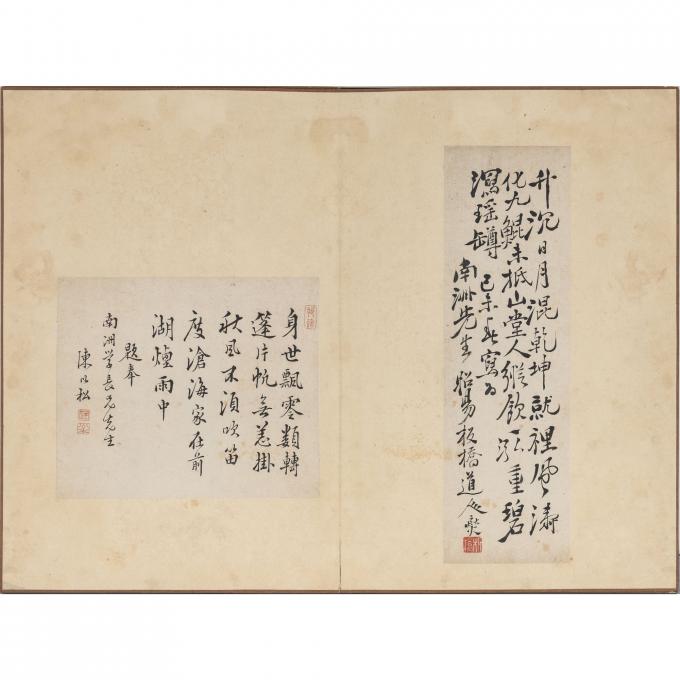 升沉日月混乾坤就裡風濤
化九鯤未抵山堂人縱飲重碧
瀉瑶罇 己未寫为
南洲先生 昭易板橋道人燮
身世飄零類轉
蓬片帆無恙掛
秋風不須吹笛
度滄海家在前
湖煙雨中
題奉
南洲学長兄先生
陳以松